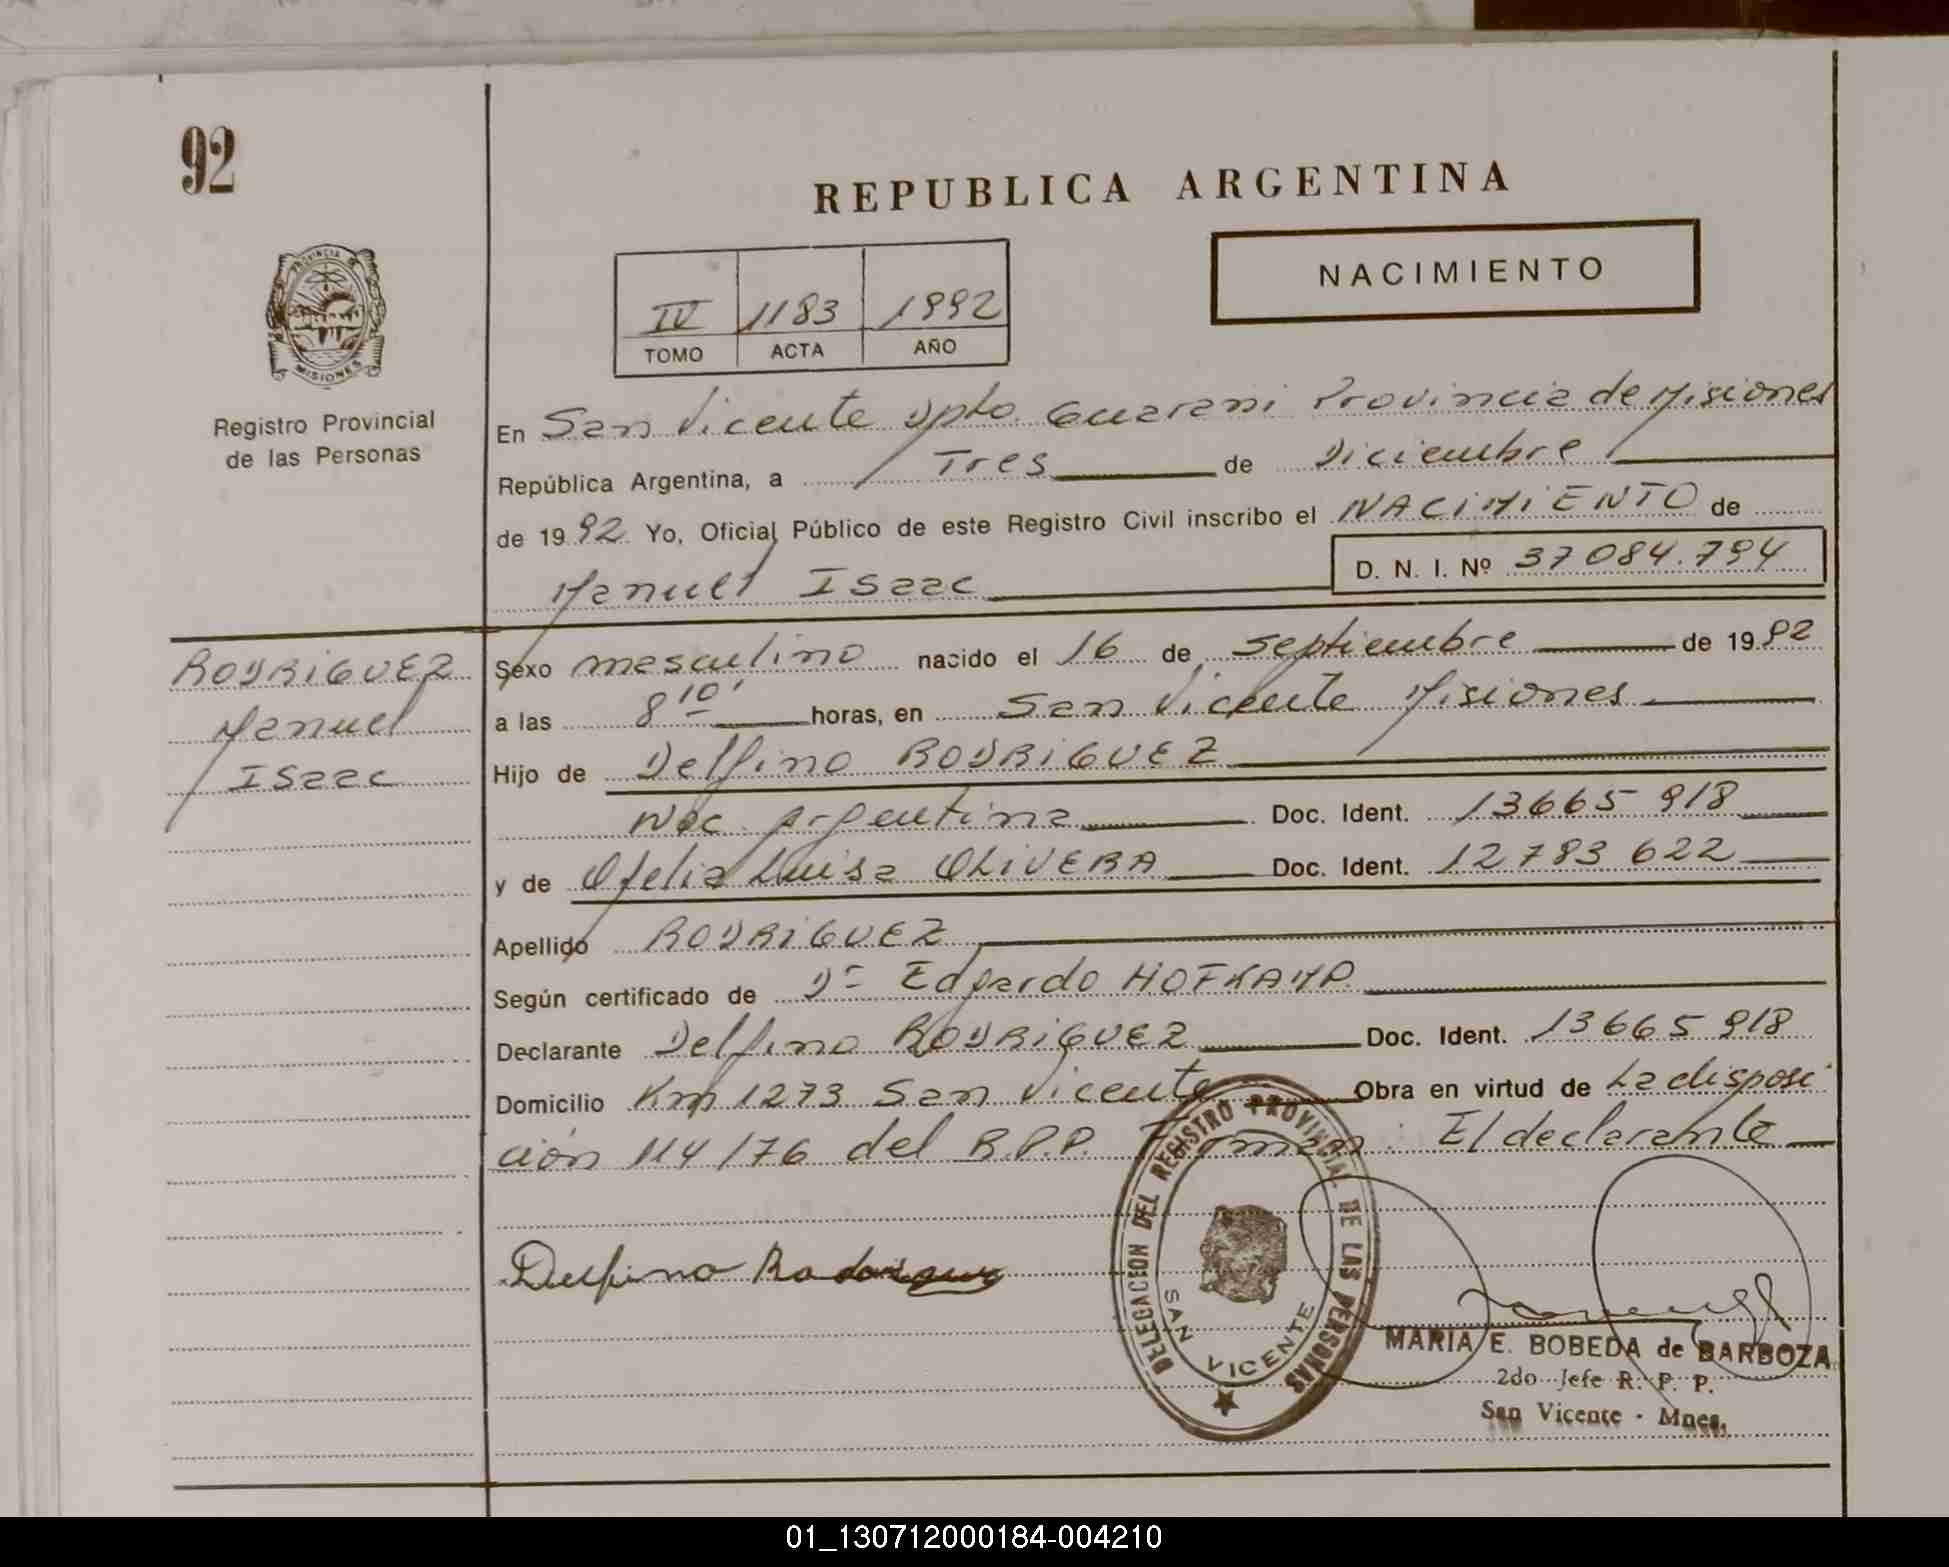 92
REPUBLICA ARGENTINA
NACIMIENTO
IV 1183 1992
TOMO ACTA AÑO
PROVINCIA DE
MISIONES
Registro Provincial
de las Personas
En San Vicente Dpto. Guarani Provincia de Misiones
República Argentina, a Tres de Diciembre
de 1992 Yo, Oficial Público de este Registro Civil inscribo el NACIMIENTO de
Manuel Isaac D. N. I. Nº 37084.794
RODRIGUEZ
Manuel
Isaac
Sexo masculino nacido el 16 de septiembre de 1992
a las 8 10' horas, en San Vicente Misiones
Hijo de Delfino RODRIGUEZ
Nac. Argentina Doc. Ident. 13665 918
y de Ofelia Luisa OLIVERA Doc. Ident. 12783 622
Apellido RODRIGUEZ
Según certificado de Dr Edgardo HOFKAMP.
Declarante Delfino RODRIGUEZ Doc. Ident. 13665 918
Domicilio Km 1273 San Vicente Obra en virtud de La disposi
ción 114/76 del R.P.P. Firman: El declarante
Delfino Rodriguez
DELEGACION DEL REGISTRO PROVINCIAL DE LAS PERSONAS
SAN VICENTE
MARIA E. BOBEDA de BARBOZA
2do Jefe R. P. P.
San Vicente - Mnes.
01_130712000184-004210